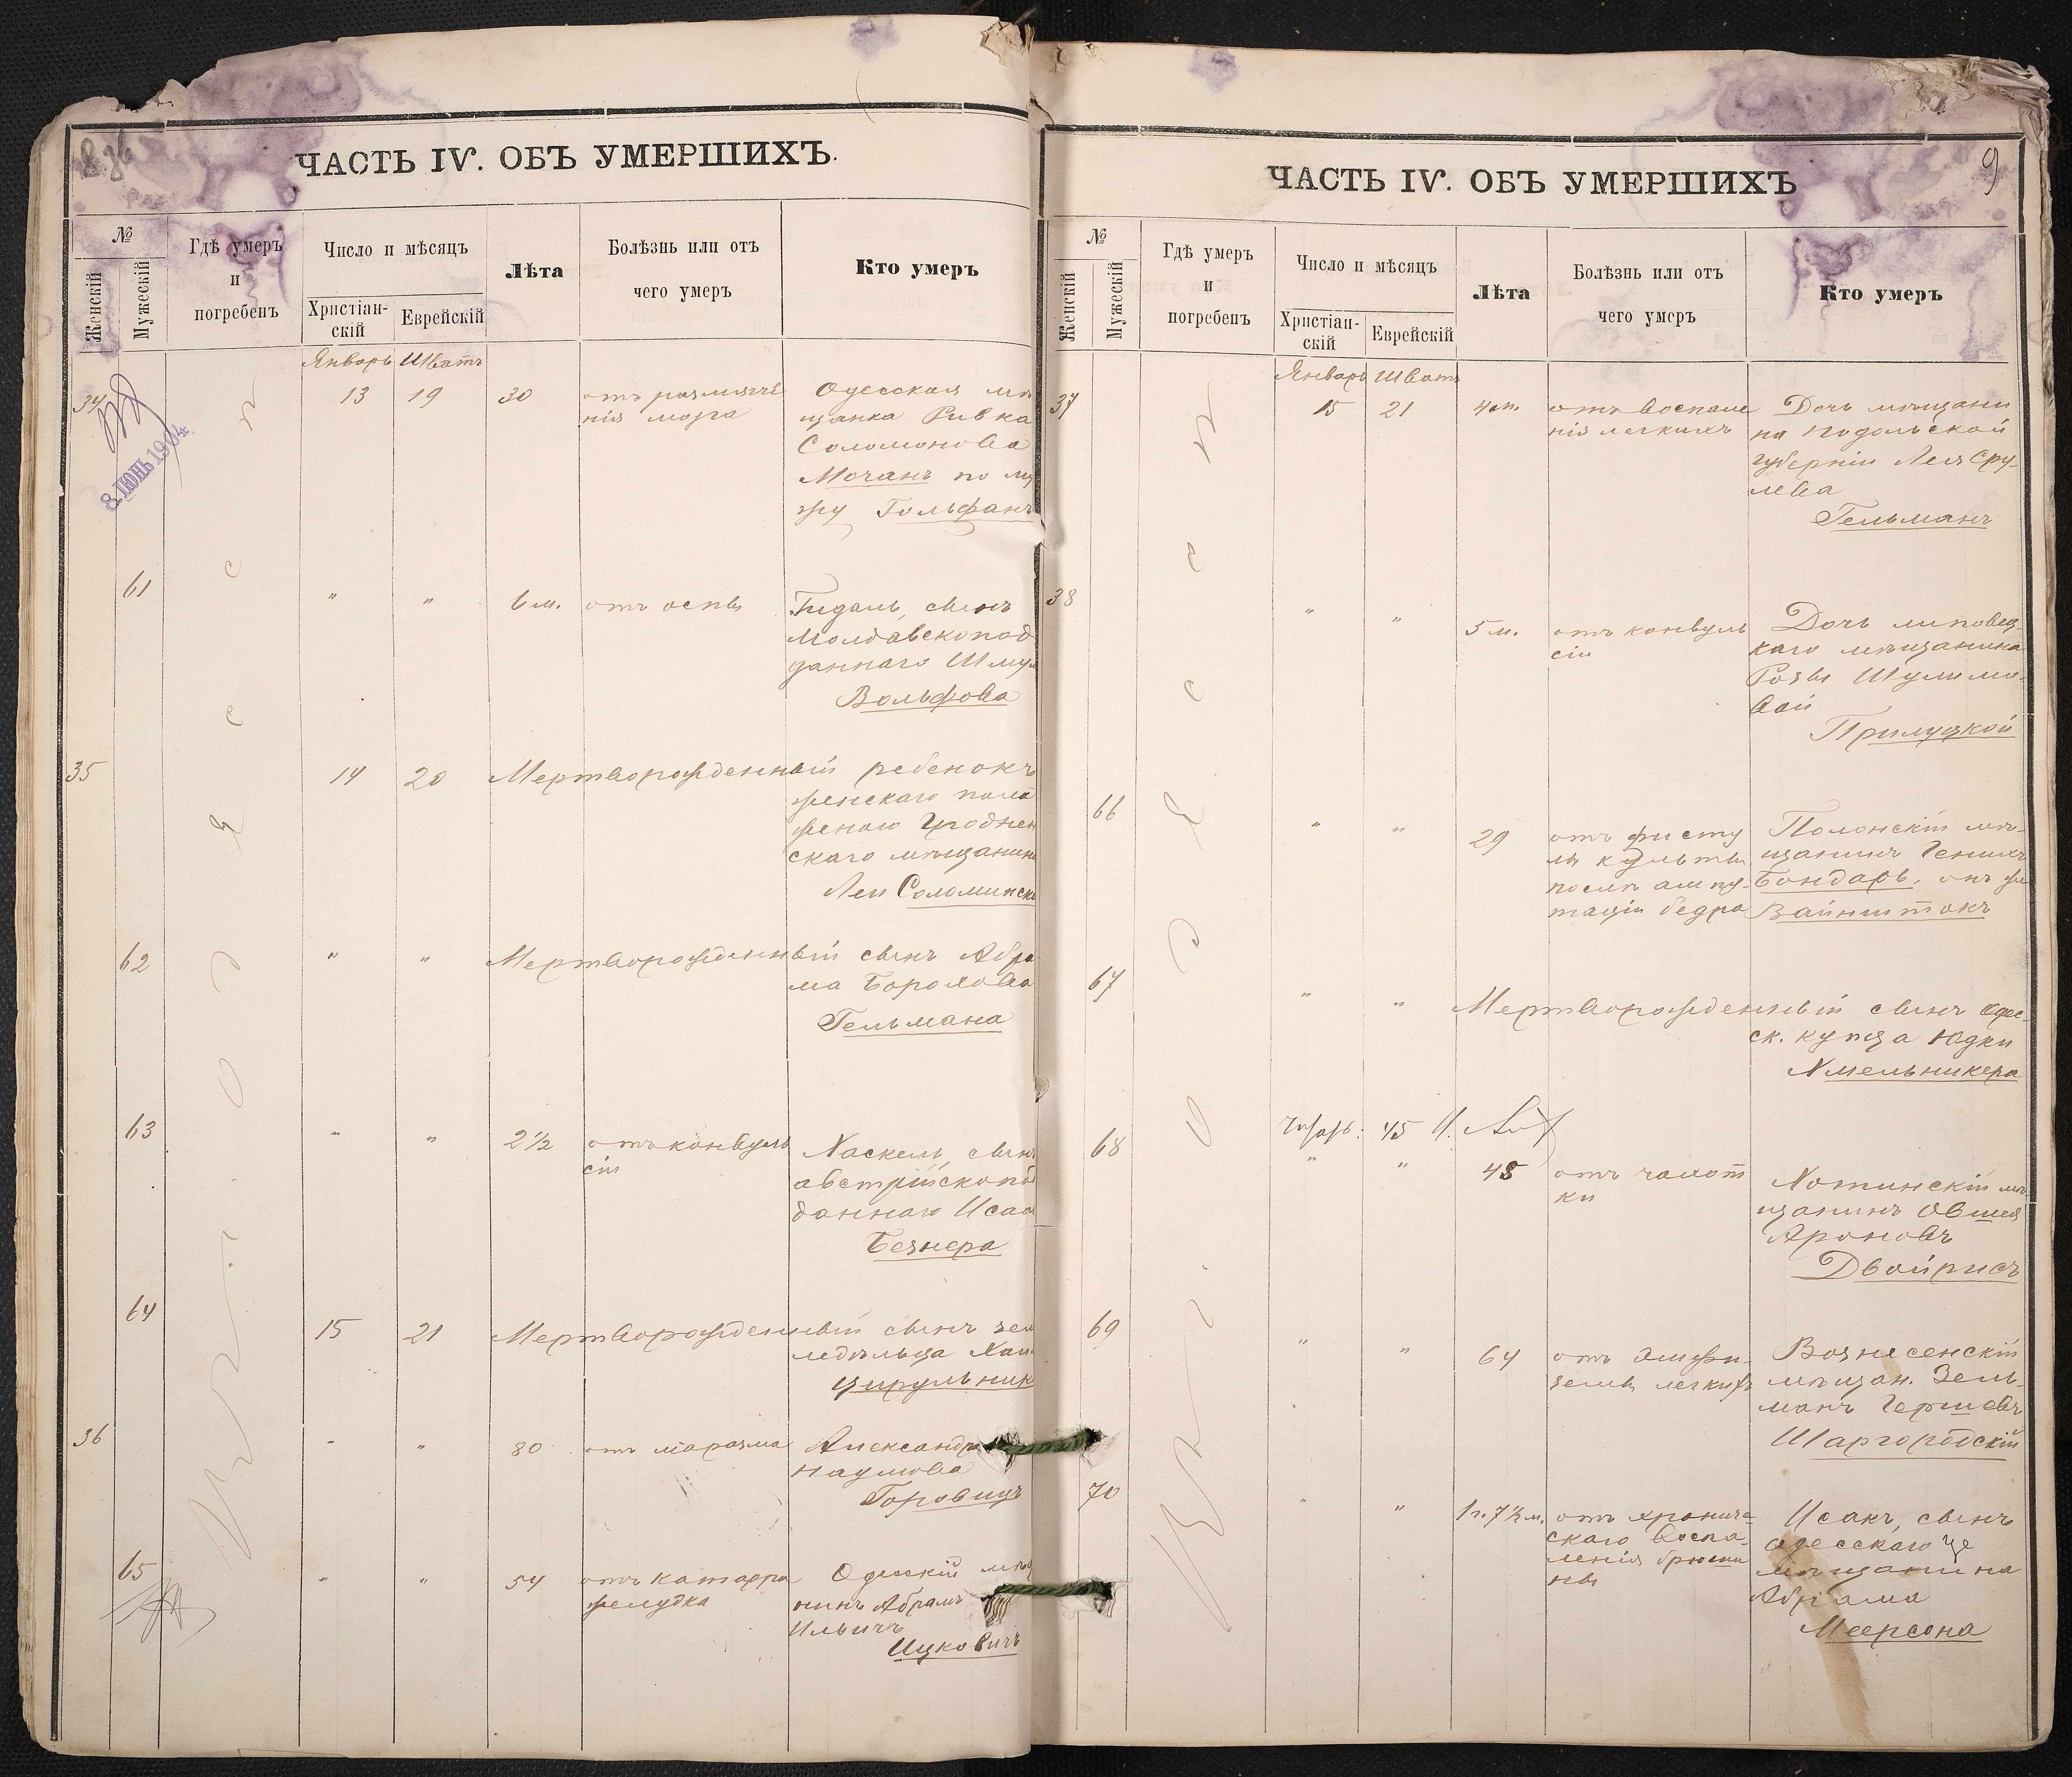 ЧАСТЬ IV. ОБЪ УМЕРШИХЪ.
№
Женскій
Мужескій
Гдѣ умеръ
и
погребенъ
Число и мѣсяцъ
Христіан-
скій
Еврейскій
Лѣта
Болѣзнь или отъ
чего умеръ
Кто умеръ
Январь Шватъ
34 13 19 30 отъ размягче
нія мозга
Одесская мѣ
щанка Ривка
Соломонова
Мочанъ по му
жу Гольфанъ
8 ІЮНЬ 1904
61 " " 6 м. отъ оспы
Гидаль, сынъ
Молдавскопод
даннаго Шмуля
Вольфова
35 14 20 Мертворожденный ребенокъ
женскаго пола
женою Гроднен
скаго мѣщанина
Леи Соломинск
62 " " Мертворожденный сынъ Абра
ма Борохова
Гельмана
63 " " 2½ отъ конвуль
сіи
Хаскель, сынъ
австрійскопод
даннаго Исаа
Безнера
64 15 21 Мертворожденный сынъ зем
ледѣльца Хаи
Цирульник
36 " " 80 отъ маразма
Александра
Наумова
Горовицъ
65 " " 54 отъ катарра
желудка
Одесскій мѣщ
нинъ Абрамъ
Ильичъ
Ицковичъ
въ г. Одессѣ
ЧАСТЬ IV. ОБЪ УМЕРШИХЪ
9
№
Женскій
Мужескій
Гдѣ умеръ
и
погребенъ
Число и мѣсяцъ
Христіан-
скій
Еврейскій
Лѣта
Болѣзнь или отъ
чего умеръ
Кто умеръ
Январь Шватъ
37 15 21 4 л. отъ воспале
нія легкихъ
Дочь мѣщани
на Подольской
губерніи Лея Сру-
лева
Гельманъ
38 " " 5 м. отъ конвуль
сіи
Дочь липовец-
каго мѣщанина
Розы Шулимо-
вой
Прилуцкой
66 " " 29 отъ фисту
лы культы
послѣ ампу-
таціи бедра
Полонскій мѣ-
щанинъ Генихъ
Бондарь, онъ же
Вайнштокъ
67 " " Мертворожденный сынъ Одес-
ск. купца Юдки
Хмельникера
68 " " 45 отъ чахот
ки
Хотинскій мѣ-
щанинъ Овшея
Ароновъ
Двойрисъ
69 " " 64 отъ эмфи-
земы легкихъ
Вознесенскій
мѣщан. Зель-
манъ Гершевъ
Шаргородскій
70 " " 1 г. 7½ м. отъ хрониче-
скаго воспа-
ленія брюши
ны
Исакъ, сынъ
одесскаго це
мѣщанина
Абрама
Меерсона
въ г. Одессѣ